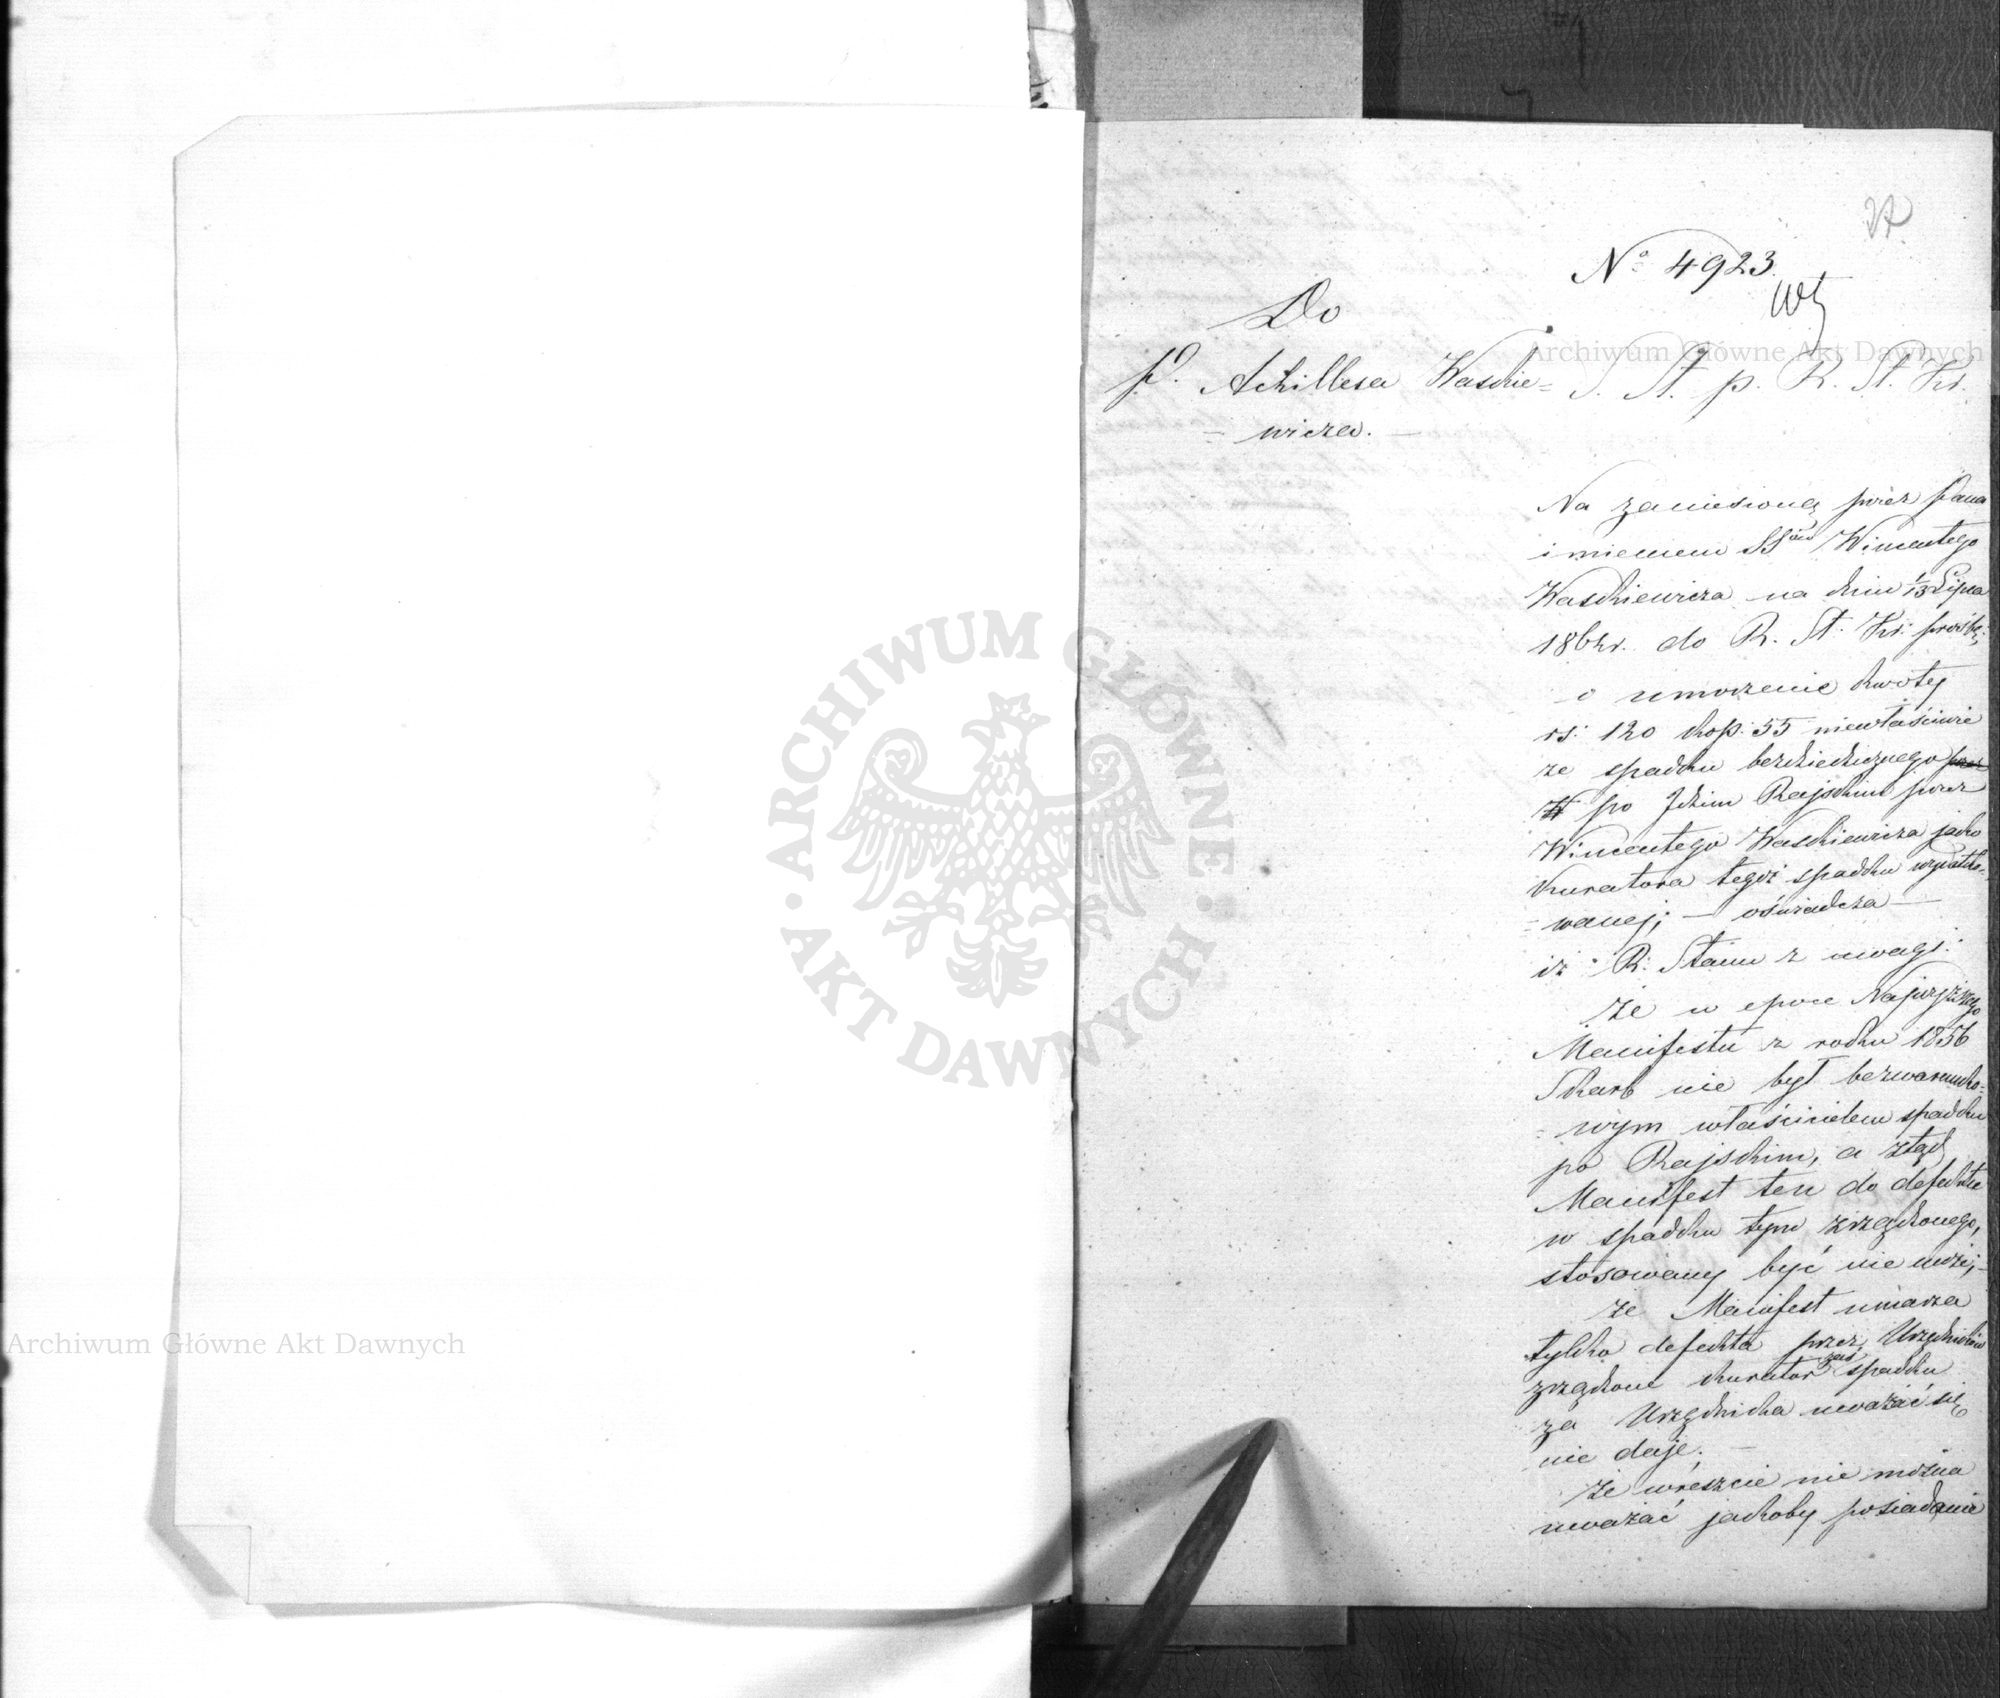 27
Nº 4923
Do
P. Achillesa Waszkie=
= wicza. —
S. St. p. R. St. Kr.
Na zaniesioną przez Pana
imieniem SSrów Wincentego
Waszkiewicza na dniu 1/13 Lipca
1862 r. do R. St. Kr. prośbę,
o umorzenie kwoty
rs. 120 kop. 55 niewłaściwie
ze spadku bezdziedzicznego przez
po Rajskim przez
Wincentego Waszkiewicza jako
kuratora tegoż spadku wydatko=
= wanej; — oświadcza —
iż R. Stanu z uwagi:
że w epoce Najwyższego
Manifestu z roku 1856
Skarb nie był bezwarunko=
= wym właścicielem spadku
po Rajskim, a ztąd
Manifest ten do defektu
w spadku tym zrządzonego,
stosowany być nie może; —
że Manifest umarza
tylko defekta przez Urzędników
zrządzone kurator zaś spadku
za Urzędnika uważać się
nie daje. —
że wreszcie nie można
uważać jakoby posiadanie
Archiwum Główne Akt Dawnych
Archiwum Główne Akt Dawnych
ARCHIWUM GŁÓWNE · AKT DAWNYCH ·